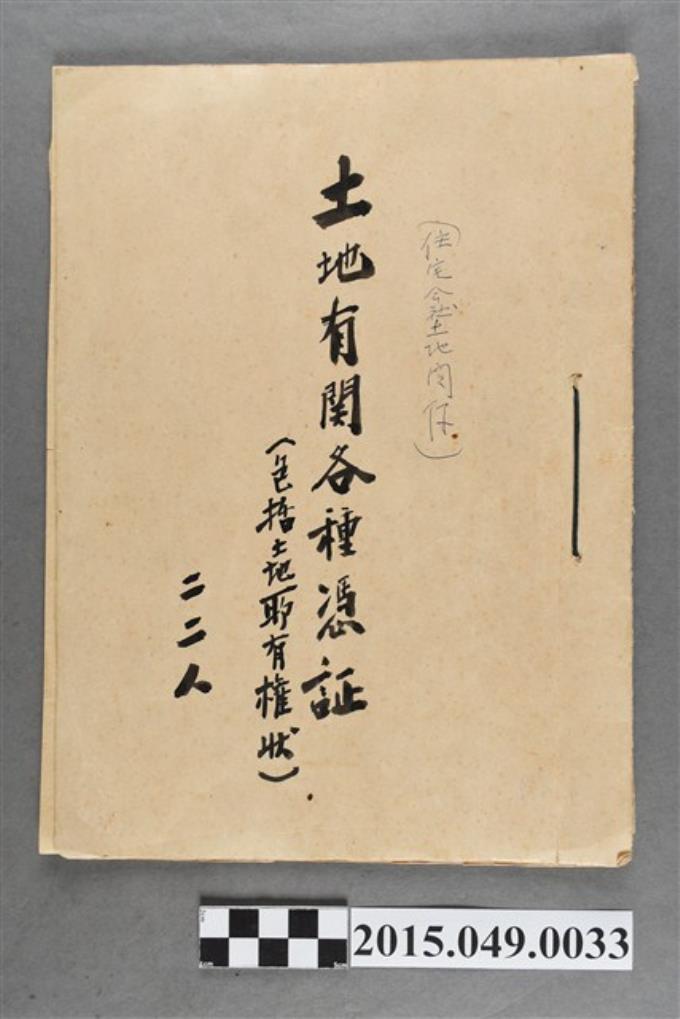 (住宅会社土地関係)
土地有関各種憑証
(包括土地所有権状)
二二人
2015.049.0033